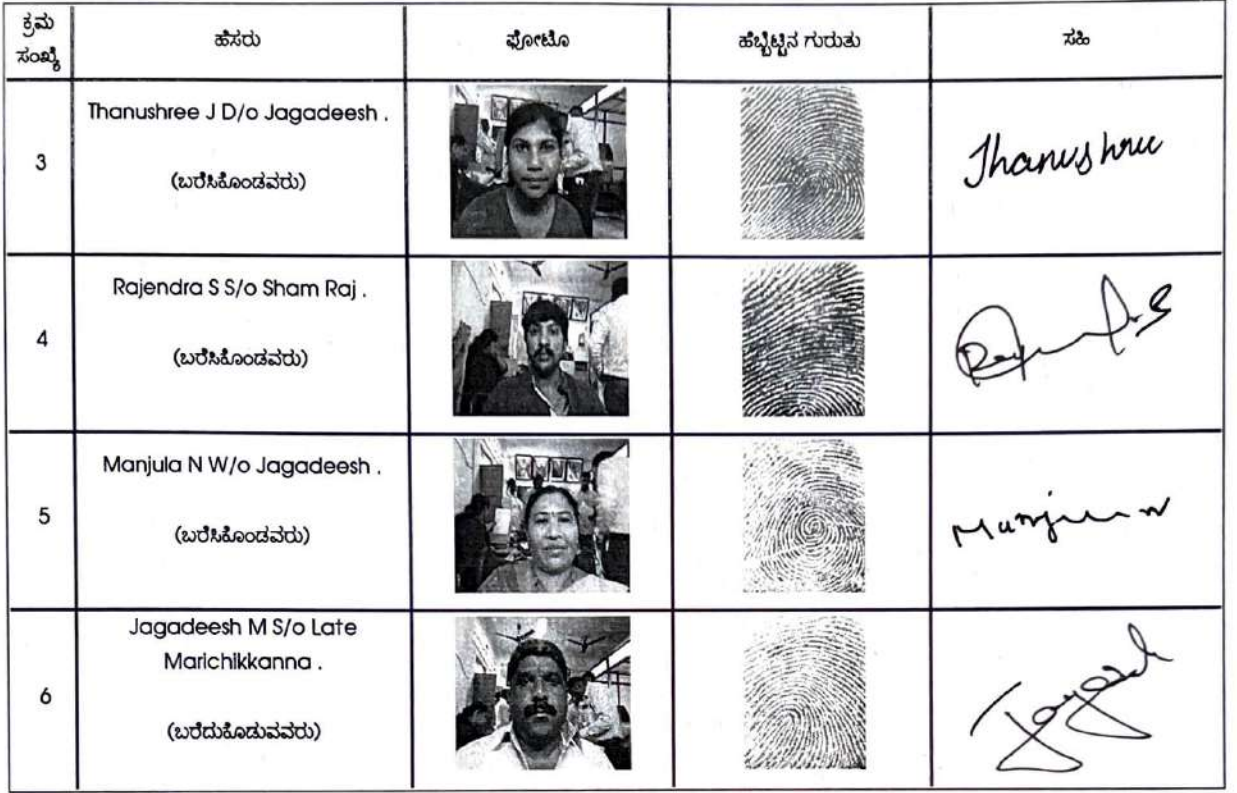 ಕ್ರಮ
ಸಂಖ್ಯೆ
ಹೆಸರು
ಫೋಟೊ
ಹೆಬ್ಬೆಟ್ಟಿನ ಗುರುತು
ಸಹಿ
3
Thanushree J D/o Jagadeesh .
(ಬರೆಸಿಕೊಂಡವರು)
Thanushree
4
Rajendra S S/o Sham Raj .
(ಬರೆಸಿಕೊಂಡವರು)
5
Manjula N W/o Jagadeesh .
(ಬರೆಸಿಕೊಂಡವರು)
6
Jagadeesh M S/o Late
Marichikkanna .
(ಬರೆದುಕೊಡುವವರು)